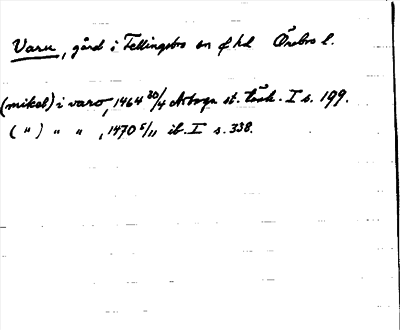 Varu, gård i Fellingsbro sn o hd Örebro l.
(mikel) i varo, 1464 30/4 Arboga st. tänk. I s. 199.
(") " " , 1470 5/11 ib. I s. 338.